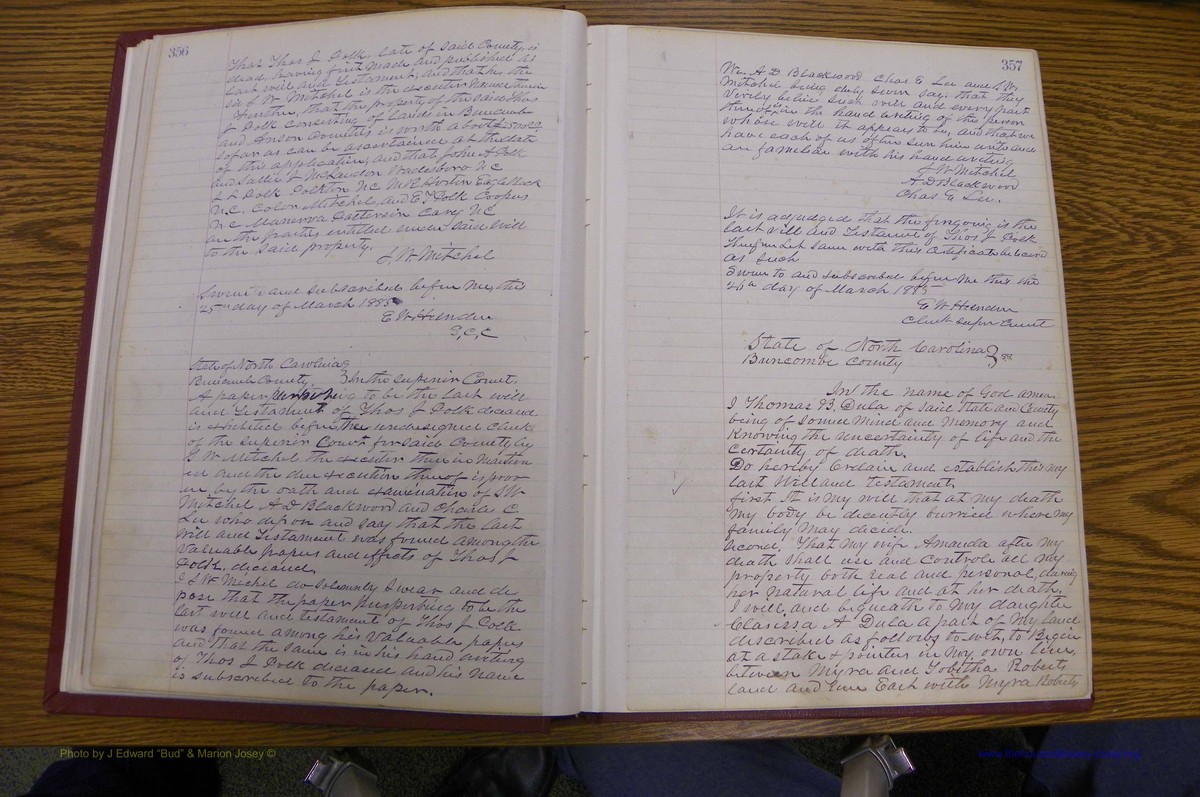 356
That Thos J Polk, late of said County, is
dead, having first made and published his
last will and Testament, and that he the
J W Mitchel is the executor named therein
Further, that the property of the said Thos
J Polk consisting of Lands in Buncomb
and Anson Counties is worth about
so far as can be ascertained at the date
of this application, and that John A Polk
and Sallie J McLendon Wadesboro NC
L L Polk Polkton NC M R Hortin Eagle Rock
N.C. Colon Mitchel, and E T Polk Coopers
NC Manerva Patterson Cary NC
are the parties entitled under said will
to the said property.
J W Mitchel
Sworn to and subscribed before me, this
25th day of March 1885
E W Herndon
S, C, C
State of North Carolina
Buncomb County } In the Superior Court.
A paper purporting to be the last will
and Testament of Thos J Polk deceased
is exhibited before the undersigned clerk
of the Superior Court for said County by
J W Mitchel the executor therein mention
ed and the due execution thereof is prov
en by the oath and examination of J W
Mitchel A D Blackwood and Charles E
Lee who depose and say that the last
will and Testament was found among the
valuable papers and effects of Thos J
Polk. deceased.
I J W Mechel do solemnly swear and de
pose that the paper purporting to be the
last will and testament of Thos J Polk
was found among his valuable papers
and that the same is in his hand writing
of Thos J Polk deceased and his name
is subscribed to the paper.
357
We. A D Blackwood Chas E Lee and J W
Mitchel being duly sworn say that they
verily believe such will and every part
thereof is in the hand writing of the person
whose will it appears to be, and that we
have each of us often seen him write and
are familiar with his hand writing
J W Mitchel
A D Blackwood
Chas E Lee.
It is adjudged that the foregoing is the
last will and Testament of Thos J Polk
Therefore Let same with this certificate be recorded
as such
Sworn to and subscribed before me this the
day of March 1885
E W Herndon
Clerk Super Court
State of North Carolina }
Buncombe County } ss
In the name of God amen.
I Thomas B. Dula of said State and County
being of sound mind and memory and
Knowing the uncertainty of life and the
certainty of death.
Do hereby Ordain and establish this my
last Will and testament.
first. It is my will that at my death
my body be decently burried where my
family may decide.
Second. That my wife Amanda after my
death shall use and controle all my
property both real and personal, during
her natural life and at her death.
I will and bequeath to my daughter
Clarissa A Dula a part of my land
described as follows to wit, to Begin
at a stake & pointer in my own line,
between Myra and Tobitha Roberts
land and runs East with Myra Roberts
Photo by J Edward "Bud" & Marion Josey ©